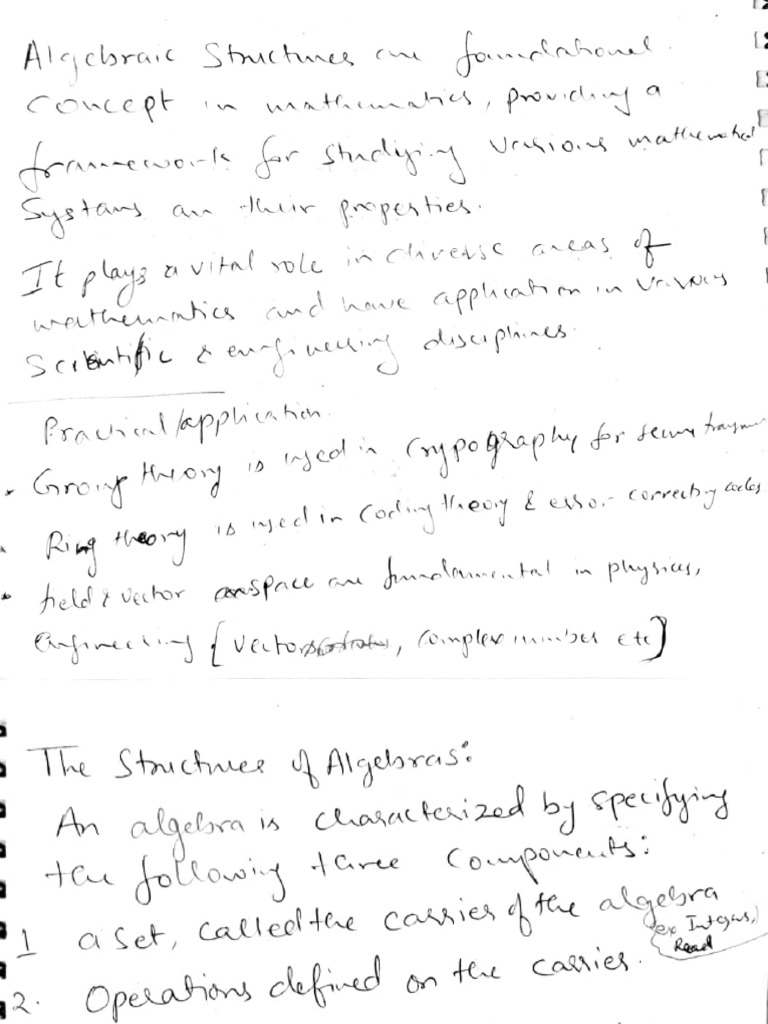 Algebraic Structures are foundational
concept in mathematics, providing a
framework for studying various mathematical
Systams an their properties.
It plays a vital role in diverse areas of
mathematics and have application in various
Scientific & engineering disciplines.
Practical/application.
Group theory is used in Crypography for secure
Ring theory is used in Coding theory & error-correcting codes
field & vector space are fundamental in physics,
Engineering [vector, complex number etc]
The Structures of Algebras:
An algebra is characterized by specifying
the following three components:
1 a set, called the carrier of the algebra
ex Integers,
2. Operations defined on the carrier.